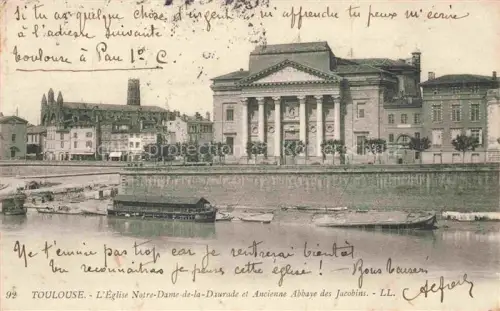 Si tu as quelque chose d'urgent à m'apprendre tu peux m'écrire
à l'adresse suivante
Toulouse à Pau 1° C.
Ne t'ennuie pas trop car je rentrerai bientôt
Tu reconnaitras je pense cette église ! Bons baisers
92 TOULOUSE. - L'Église Notre-Dame-de-la-Daurade et Ancienne Abbaye des Jacobins. - LL.